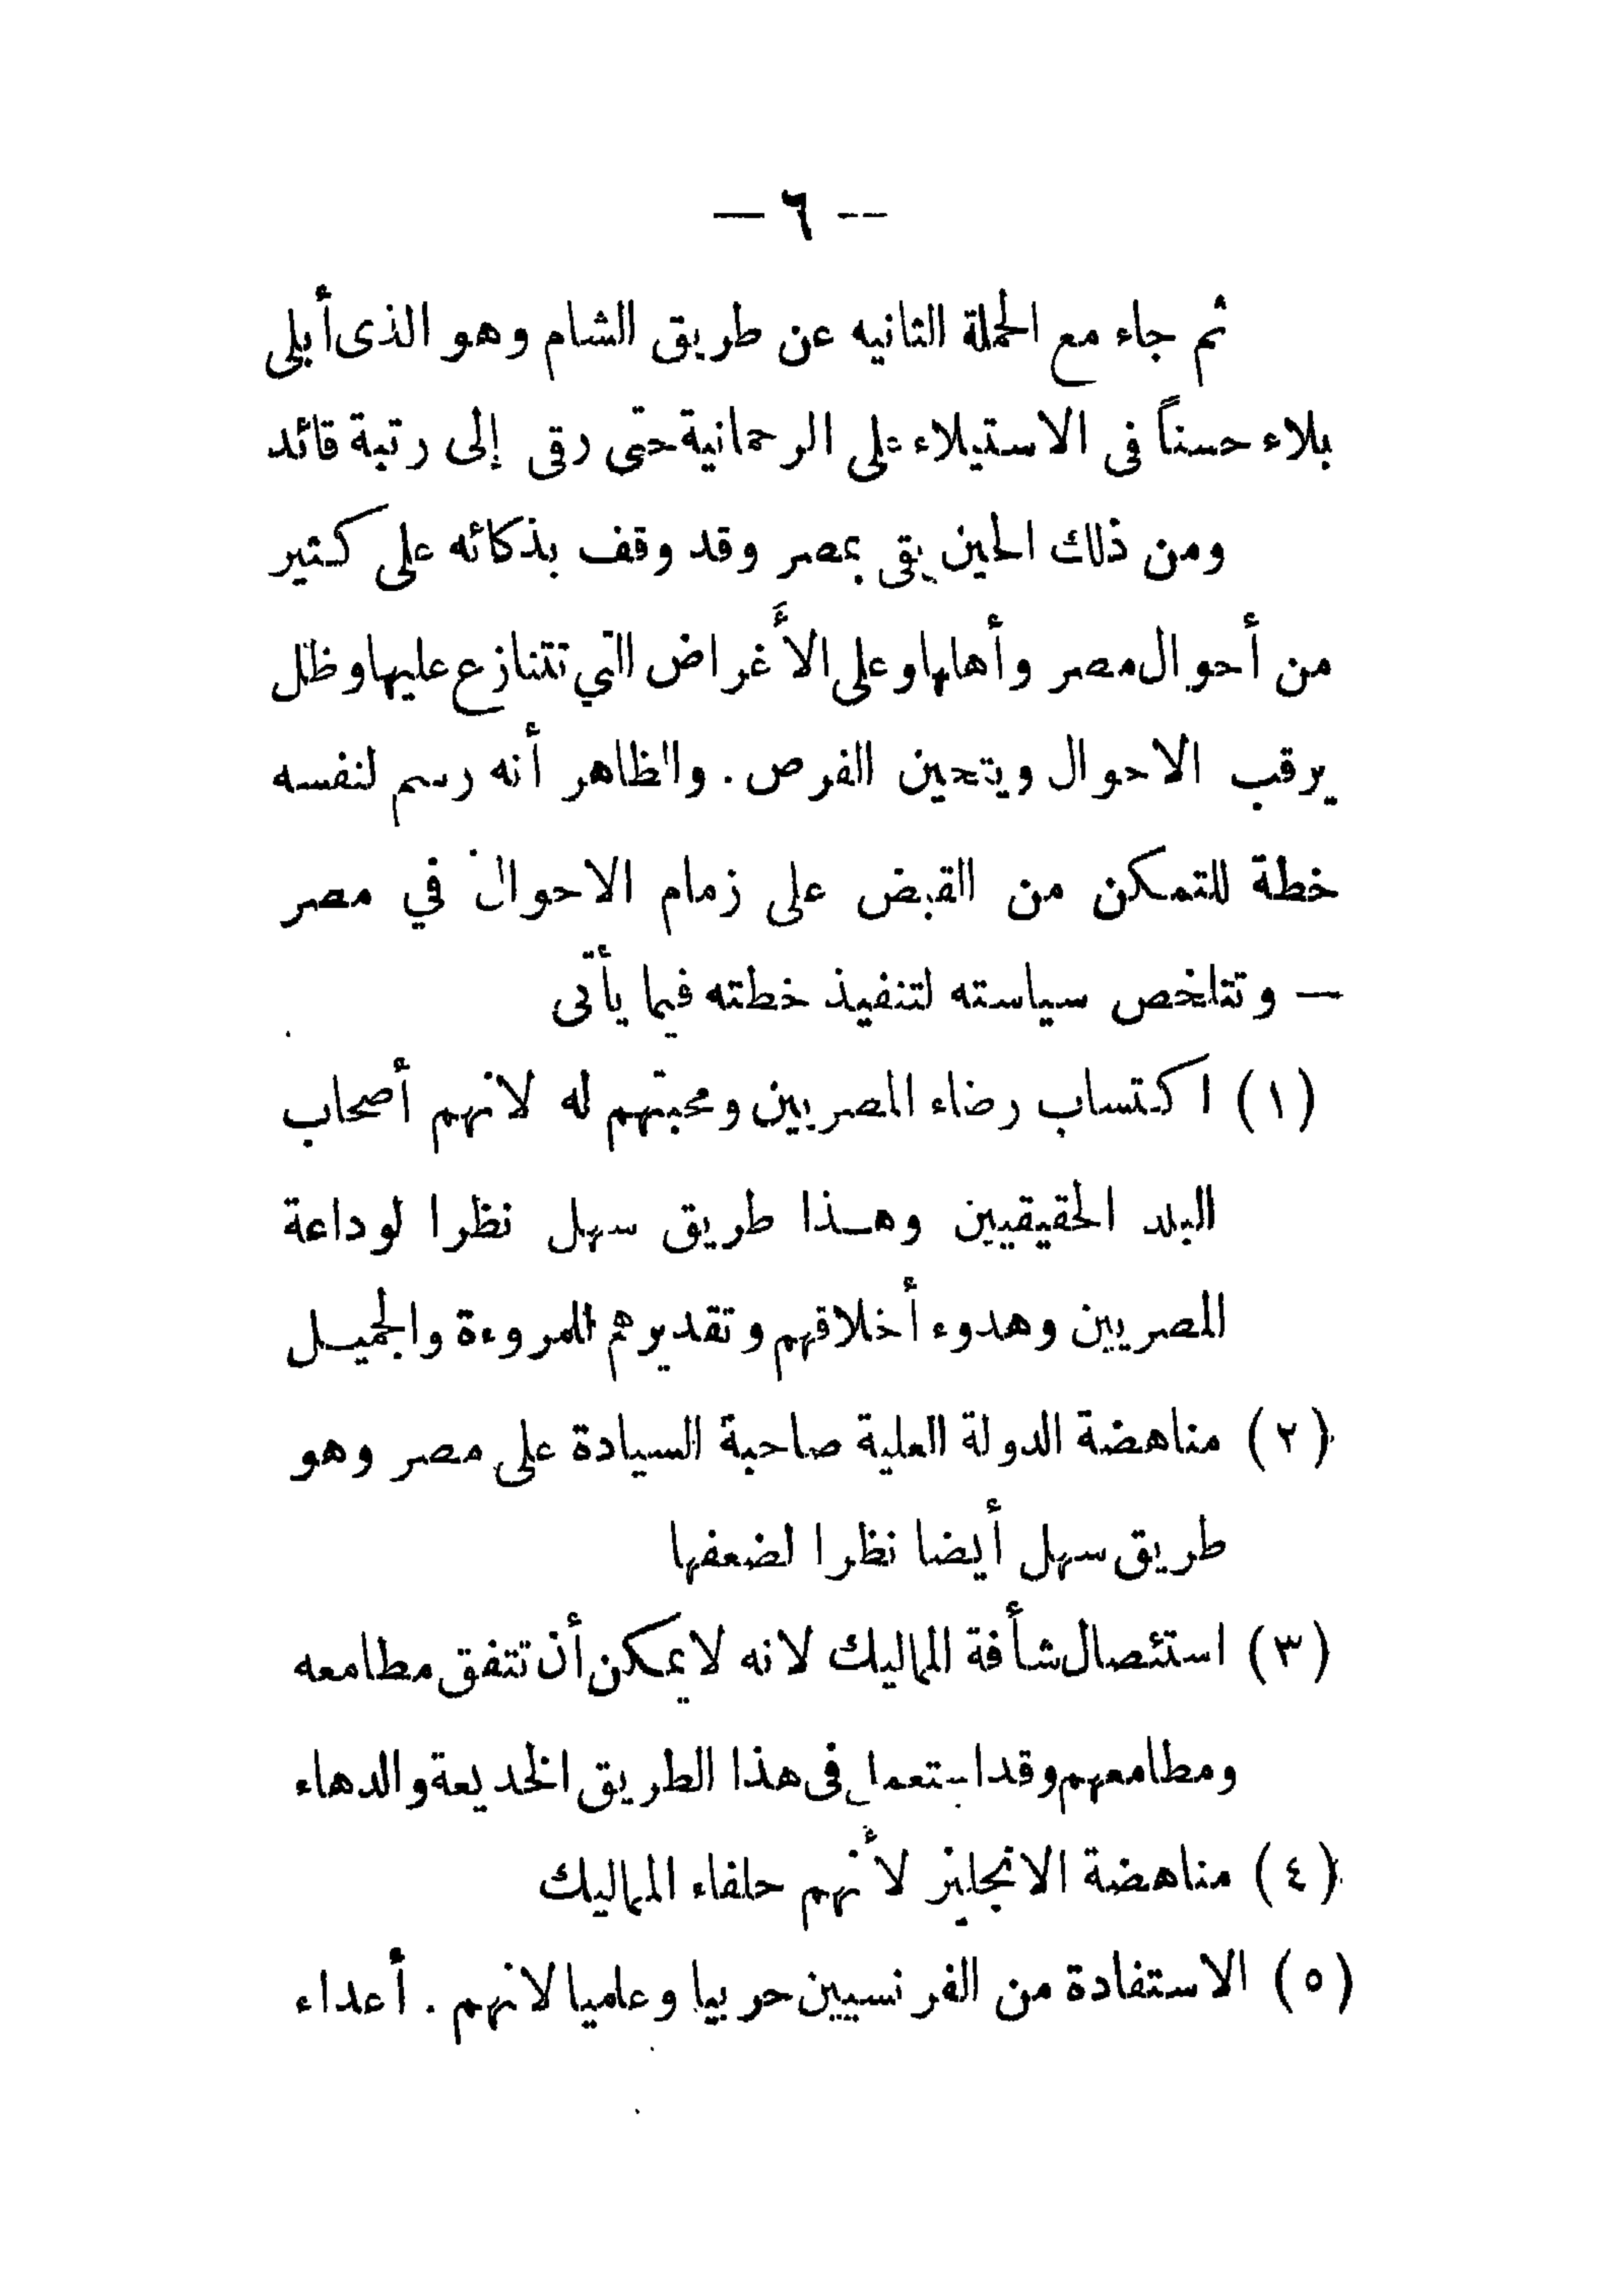 — ٦ —
ثم جاء مع الحملة الثانيه عن طريق الشام وهو الذى أبلى
بلاء حسناً فى الاستيلاء على الرحمانية حتى رقى إلى رتبة قائد
ومن ذلك الحين بقى بمصر وقد وقف بذكائه على كثير
من أحوال مصر وأهلها وعلى الأغراض التي تتنازع عليها وظل
يرقب الاحوال ويتحين الفرص . والظاهر أنه رسم لنفسه
خطة للتمكن من القبض على زمام الاحوال في مصر
— وتتلخص سياسته لتنفيذ خطته فيما يأتى
(١) اكتساب رضاء المصريين ومحبتهم له لانهم أصحاب
البلد الحقيقيين وهـذا طريق سهل نظرا لوداعة
المصريين وهدوء أخلاقهم وتقديرهم للمروءة والجميـل
(٢) مناهضة الدولة العلية صاحبة السيادة على مصر وهو
طريق سهل أيضا نظرا لضعفها
(٣) استئصال شأفة المماليك لانه لا يمكن أن تتفق مطامعه
ومطامعهم وقد استعمل فى هذا الطريق الخديعة والدهاء
(٤) مناهضة الانجليز لأنهم حلفاء المماليك
(٥) الاستفادة من الفرنسيين حربيا وعلميا لانهم . أعداء